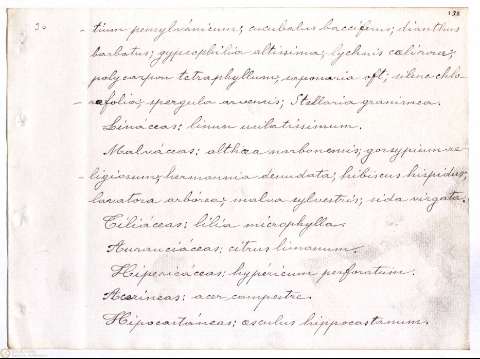 30
138
- tium pensylvánicum; cucubalus bacciferus; dianthus
barbatus; gypsophilia altissima; lychnis
polycarpon tetraphyllum, saponaria oft; silene chlo-
- ræfolia; spergula arvensis; Stellaria graminea.
Lináceas; linum usitatissimum.
Malváceas; althæa narbonensis; gossypium re-
- ligiosum; hermannia denudata; hibiscus hispidus;
lavatera arbórea; malva sylvestris; sida virgata.
Tiliáceas; tilia microphylla.
Auranciáceas; citrus limonum.
Hipericáceas; hypéricum perforatum.
Aceríneas; acer campestre.
Hipocastáneas; æsculus hippocastanum.